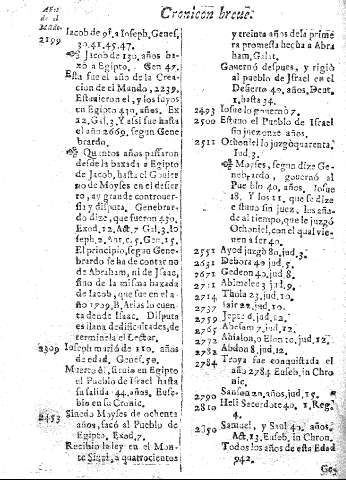 Cronicon breve.
Años
de el
Mūdo
2199
Iacob de 91. a Ioseph, Genes.
30. 41. 45. 47.
Iacob de 130. años ba-
xò a Egipto. Gen 47.
Esta fue el año de la Crea-
cion de el Mundo, 2239.
Estuvieron el, y los suyos
en Egipto 430. años. Ex
12. Gal. 3. Y assi fue hasta
el año 2669. segun Gene
brardo.
Quintos años passaron
desde la baxada a Egipto
de Jacob, hasta el
de Moyses en el desier
to, ay grande controuer-
sia y disputa. Genebrar-
do dize, que fueron 430.
Exod. 12. Act. 7 Gal. 3. Io
seph. 2. Ant. c. 5. Gen. 15.
El principio, segun Gene-
brardo se ha de contar no
de Abraham, ni de Isaac,
sino de la misma baxada
de Iacob, que fue en el a-
ño Arias lo cuen
ta dende Isaac. Disputa
es llena dificultades, de
termínela el Lector.
2309 Ioseph murió de 110. años
de edad. Gene. 50.
Muerto él, siruio en Egipto
el Pueblo de Israel hasta
su salida 44. años. Euse-
bio en su Cronic.
2453 Siendo Moyses de ochenta
años, sacó al Pueblo de
Egipto. Exod. 7.
Recibio la ley en el Mon-
te Sinai, a quatrocientos
y treinta años de la prime
ra promessa hecha a Abra
ham, Galat.
Gouernó despues, y rigió
al pueblo de Israel en el
Desierto 40. años, Deut.
1. hasta 34.
2493 Iosue lo gouernò 7.
2500 Estuuo el Pueblo de Israel
sin juez onze años.
2511 Othoniel lo juzgò quarenta,
Iud. 3.
Moyses, segun dize Ge-
nebrardo, gouernó al
Pueblo 40. años. Iosue
18. Y los 11. que se dize
estuuo sin juez, los aña-
de al tiempo, que le juzgó
Othoniel, con el qual vie-
nen a ser 40.
2551 Ayod juzgò 80, jud. 3.
2631 Debora 40 jud. 5.
2671 Gedeon 40. jud. 8.
2711 Abimelec 3 jud. 9.
2714 Thola 23. jud. 10.
2737 Iair 22. jud. 10.
2759 Jepte 6. jud. 12.
2765 Abesam 7. jud. 12.
2772 Ahialon, o Elon 10. jud. 12.
2782 Abdon 8. jud. 12.
2784 Troya fue conquistada el
año 2784 Euseb. in Chro
nic.
2790 Sanson 20. años, jud. 15.
2810 Heli Sacerdote 40. 1. Reg.
4.
2850 Samuel, y Saul 40. años.
Act. 13. Euseb. in Chron.
Todos los años de esta Edad
942.